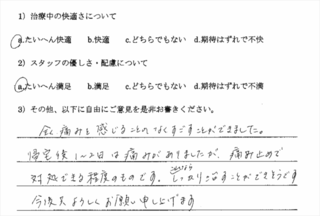 1）治療中の快適さについて
a.たいへん快適　b.快適　c.どちらでもない　d.期待はずれで不快
2）スタッフの優しさ・配慮について
a.たいへん満足　b.満足　c.どちらでもない　d.期待はずれで不満
3）その他、以下に自由にご意見を是非お書きください。
全く痛みを感じることのなくすごすことができました。
帰宅後1〜2日は痛みがありましたが、痛み止めで
対処できる程度のものです。しっかりこなすことができそうです
今後共よろしくお願い申し上げます